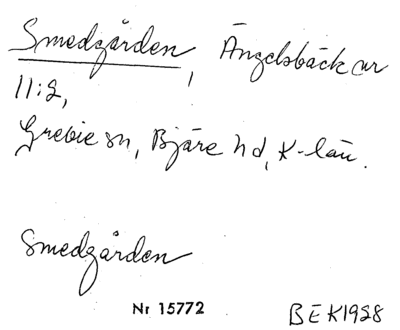 Smedgården, Ängelsbäck nr
11:2,
Grevie sn, Bjäre hd, K-län.
Smedgården
Nr 15772
BEK1928